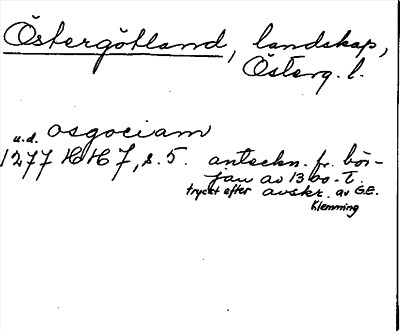 Östergötland, landskap,
Österg. l.
u.d. osgociam
1277 HH 7, s. 5. anteckn. fr. bör-
jan av 1300-t.
tryckt efter avskr. av G.E.
Klemming